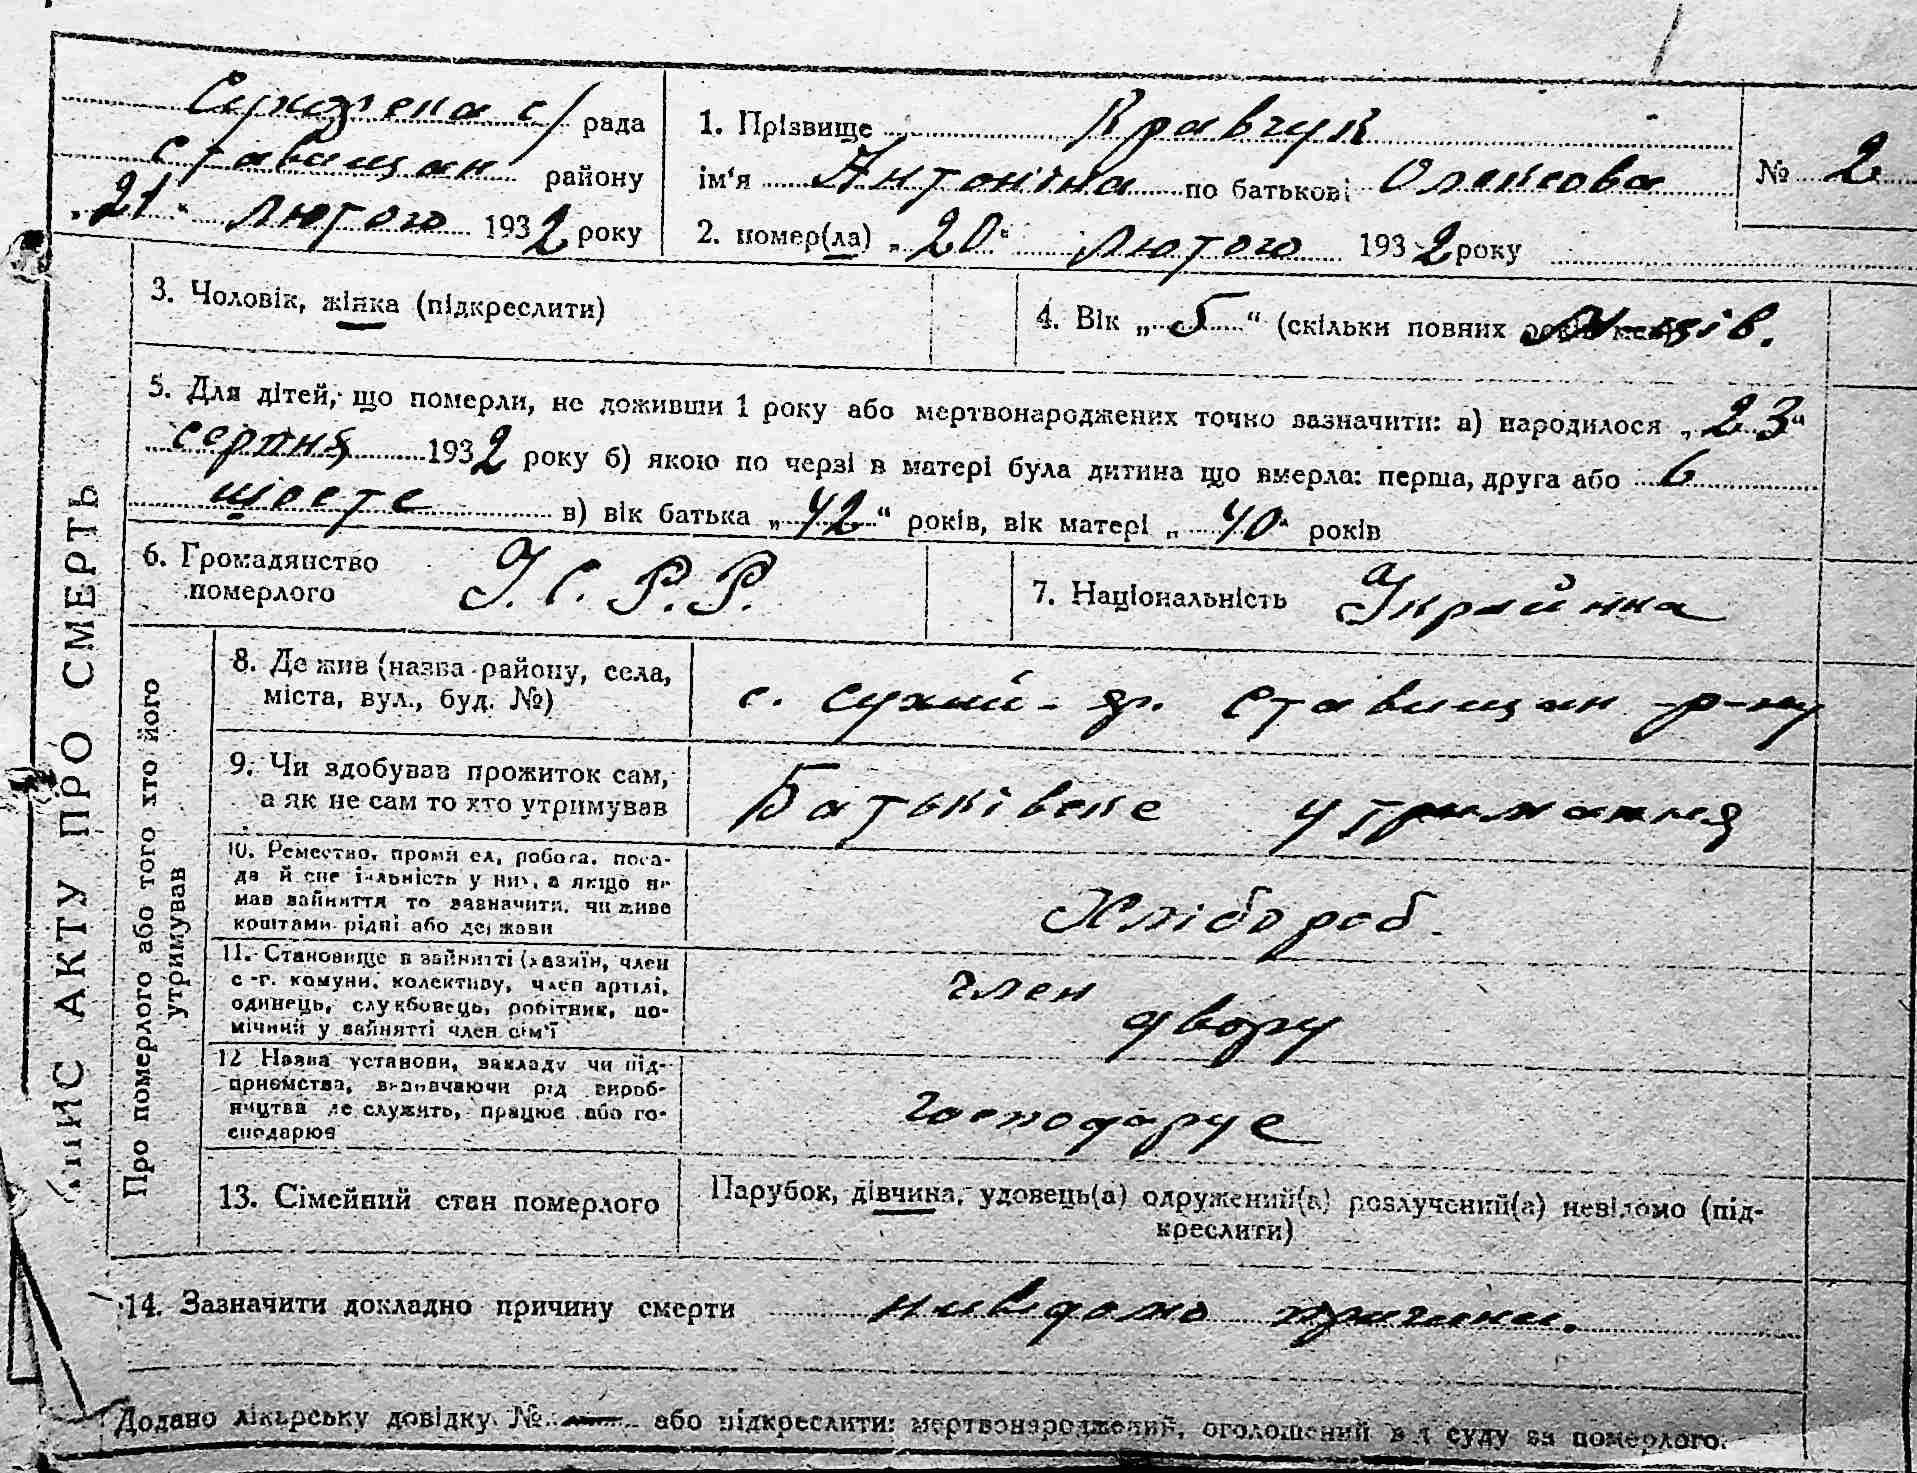 с/ рада
Ставищан району
„21“ лютого 1932 року
1. Прізвище Кравчук
ім'я Антоніна по батькові Олексова
№ 2
2. помер(ла) „20“ лютого 1932 року
3. Чоловік, жінка (підкреслити)
4. Вік „5“ (скільки повних міс-ців.
5. Для дітей, що померли, не доживши 1 року або мертвонароджених точно зазначити: а) народилося „23“
серпня 1932 року б) якою по черзі в матері була дитина що вмерла: перша, друга або 6
шосте в) вік батька „42“ років, вік матері „40“ років
6. Громадянство
померлого
У.С.Р.Р.
7. Національність Українка
АПИС АКТУ ПРО СМЕРТЬ
Про померлого або того хто його
утримував
8. Де жив (назва району, села,
міста, вул., буд. №)
с. Сухий-яр. Ставищан р-ну
9. Чи здобував прожиток сам,
а як не сам то хто утримував
Батьківске утримання
10. Ремество, промисел, робота, поса-
да й спеціальність у них, а якщо не
мав зайняття то зазначити, чи живе
коштами рідні або держави
Хлібороб.
11. Становище в зайнятті (хазяїн, член
с.-г. комуни, колективу, член артілі,
одинець, службовець, робітник, по-
мічний у зайнятті член сім'ї
член
двору
12 Назва установи, закладу чи під-
приємства, визначаючи рід вироб-
ництва де служить, працює або го-
сподарює
господарує
13. Сімейний стан померлого
Парубок, дівчина, удовець(а) одружений(а) розлучений(а) невідомо (під-
креслити)
14. Зазначити докладно причину смерти невідомо причини.
Додано лікарську довідку № — або підкреслити: мертвонароджений, оголошений від суду за померлого.